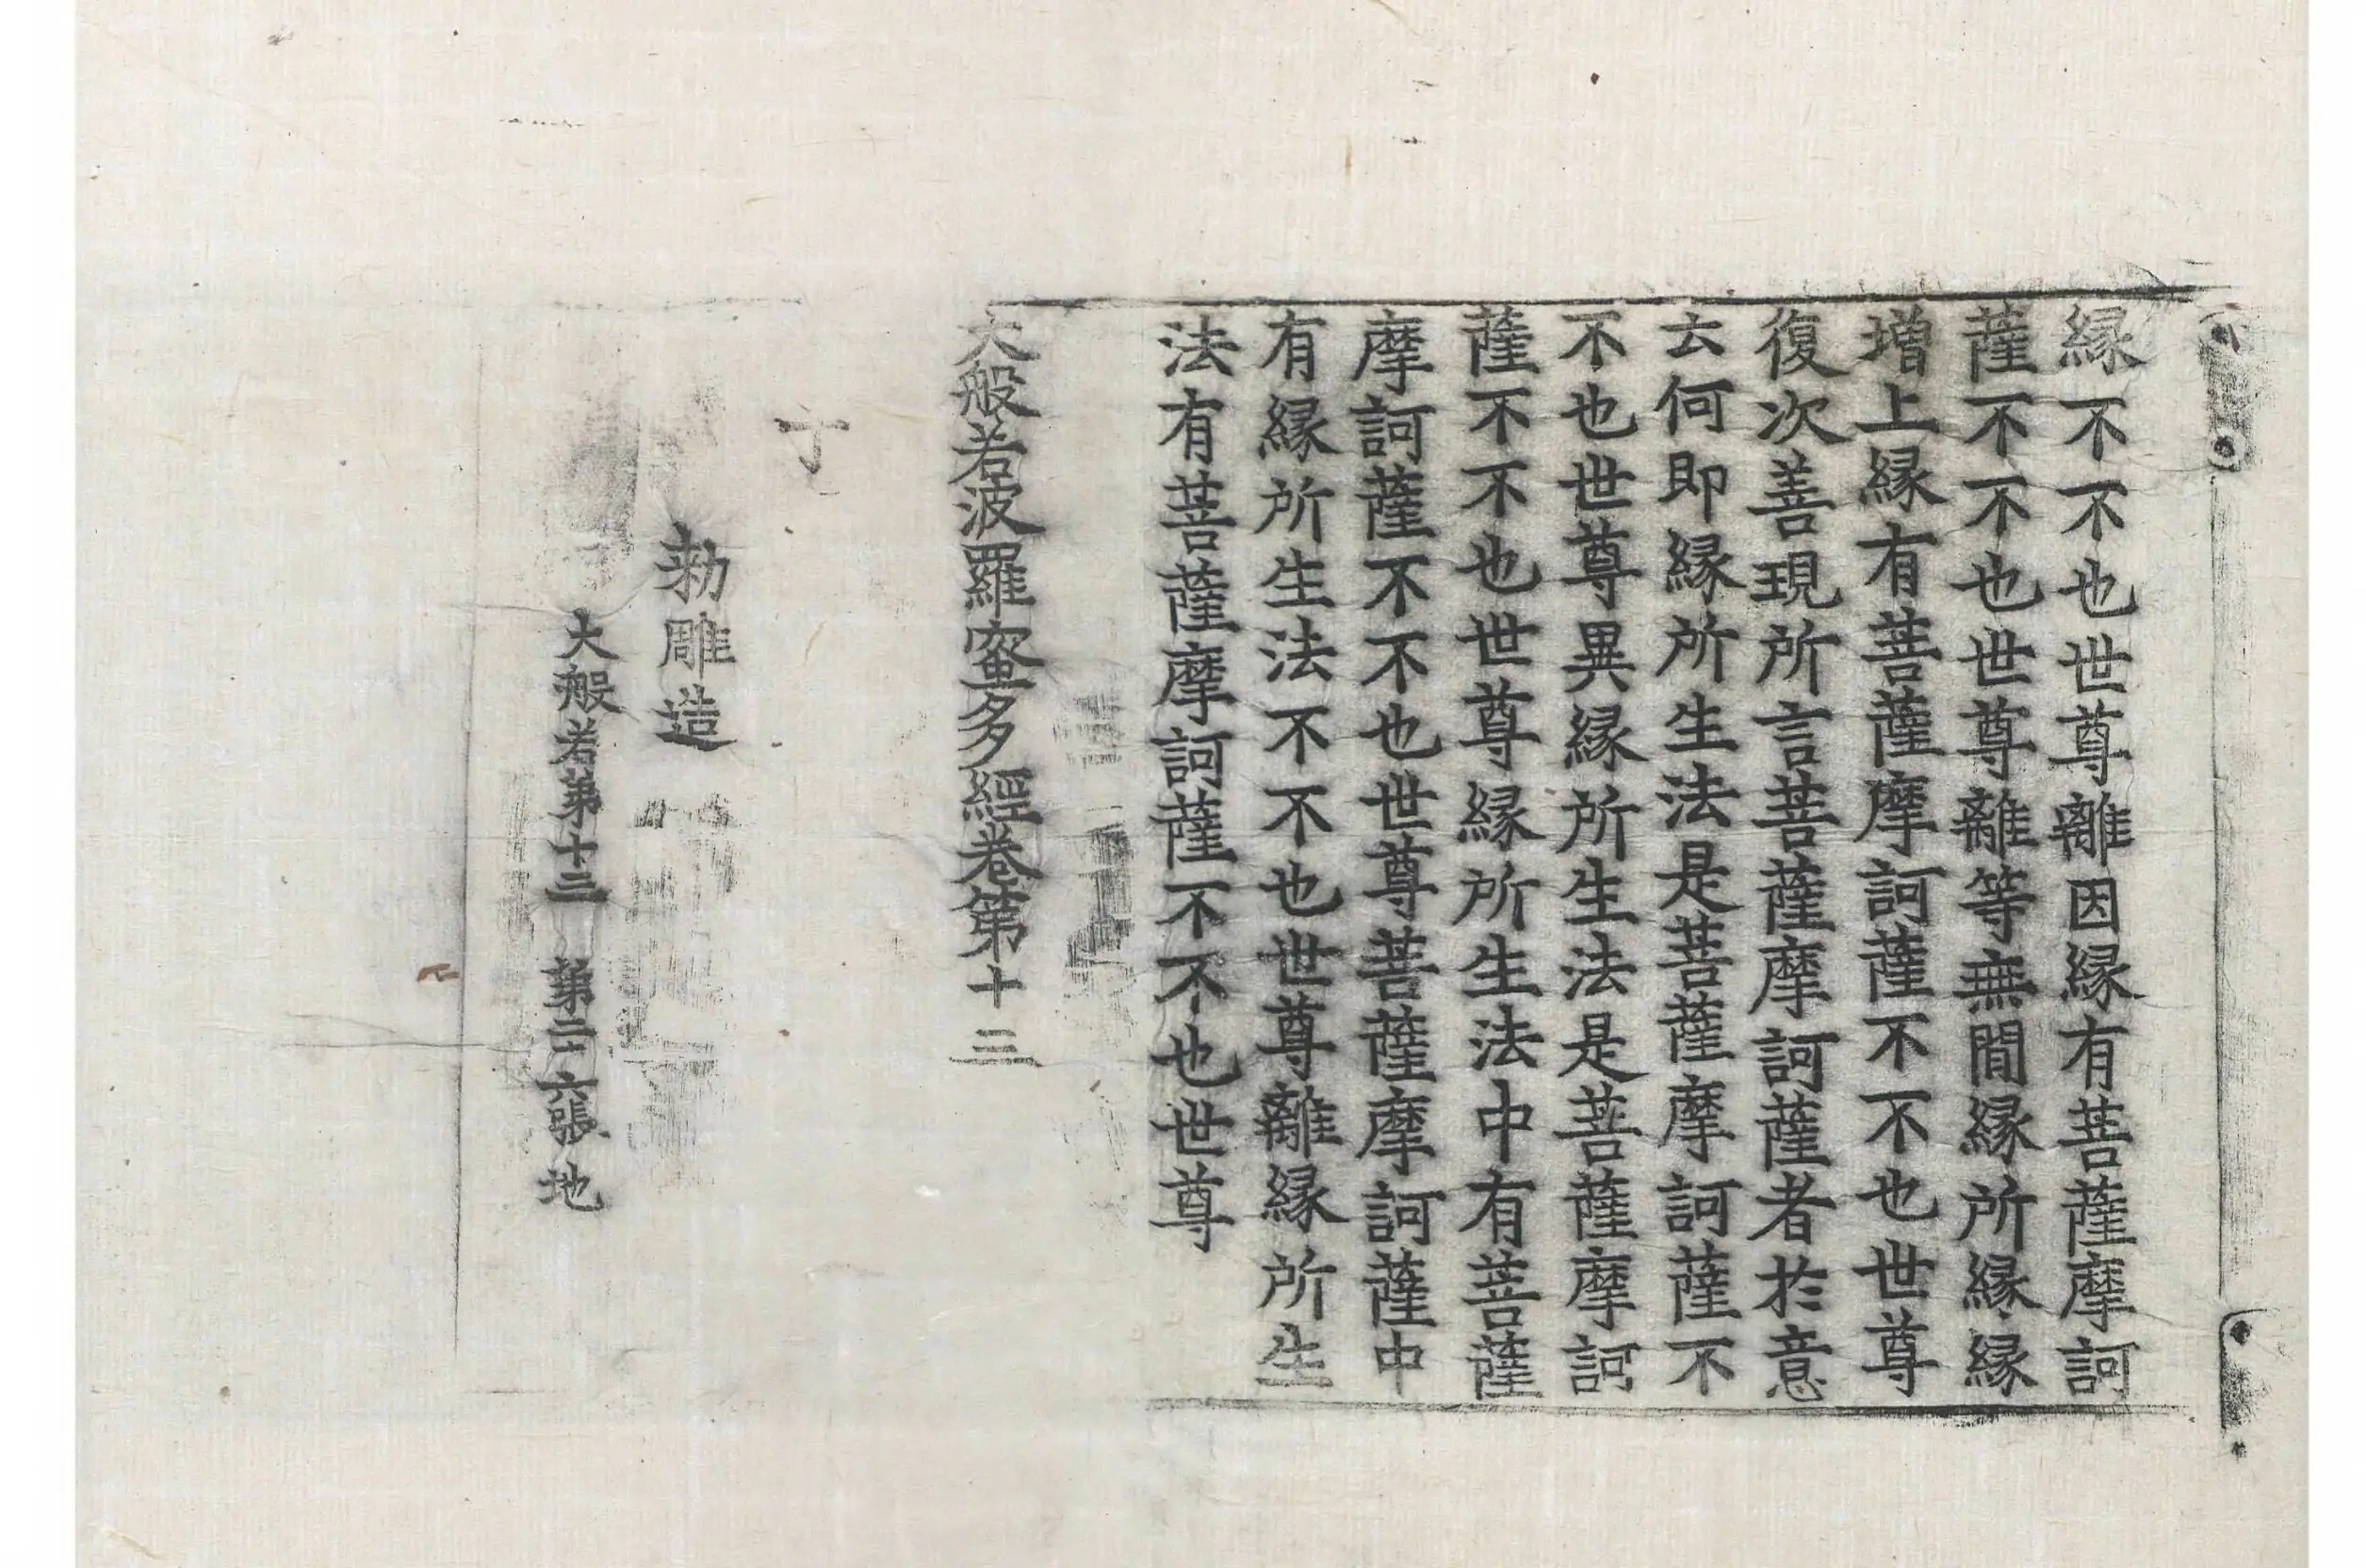 縁不不也世尊離因縁有菩薩摩訶
薩不不也世尊離等無間縁所縁縁
増上縁有菩薩摩訶薩不不也世尊
復次善現所言菩薩摩訶薩者於意
云何即縁所生法是菩薩摩訶薩不
不也世尊異縁所生法是菩薩摩訶
薩不不也世尊縁所生法中有菩薩
摩訶薩不不也世尊菩薩摩訶薩中
有縁所生法不不也世尊離縁所生
法有菩薩摩訶薩不不也世尊
大般若波羅蜜多經卷第十三
丁
勅雕造
大般若第十三 第二十六張 地